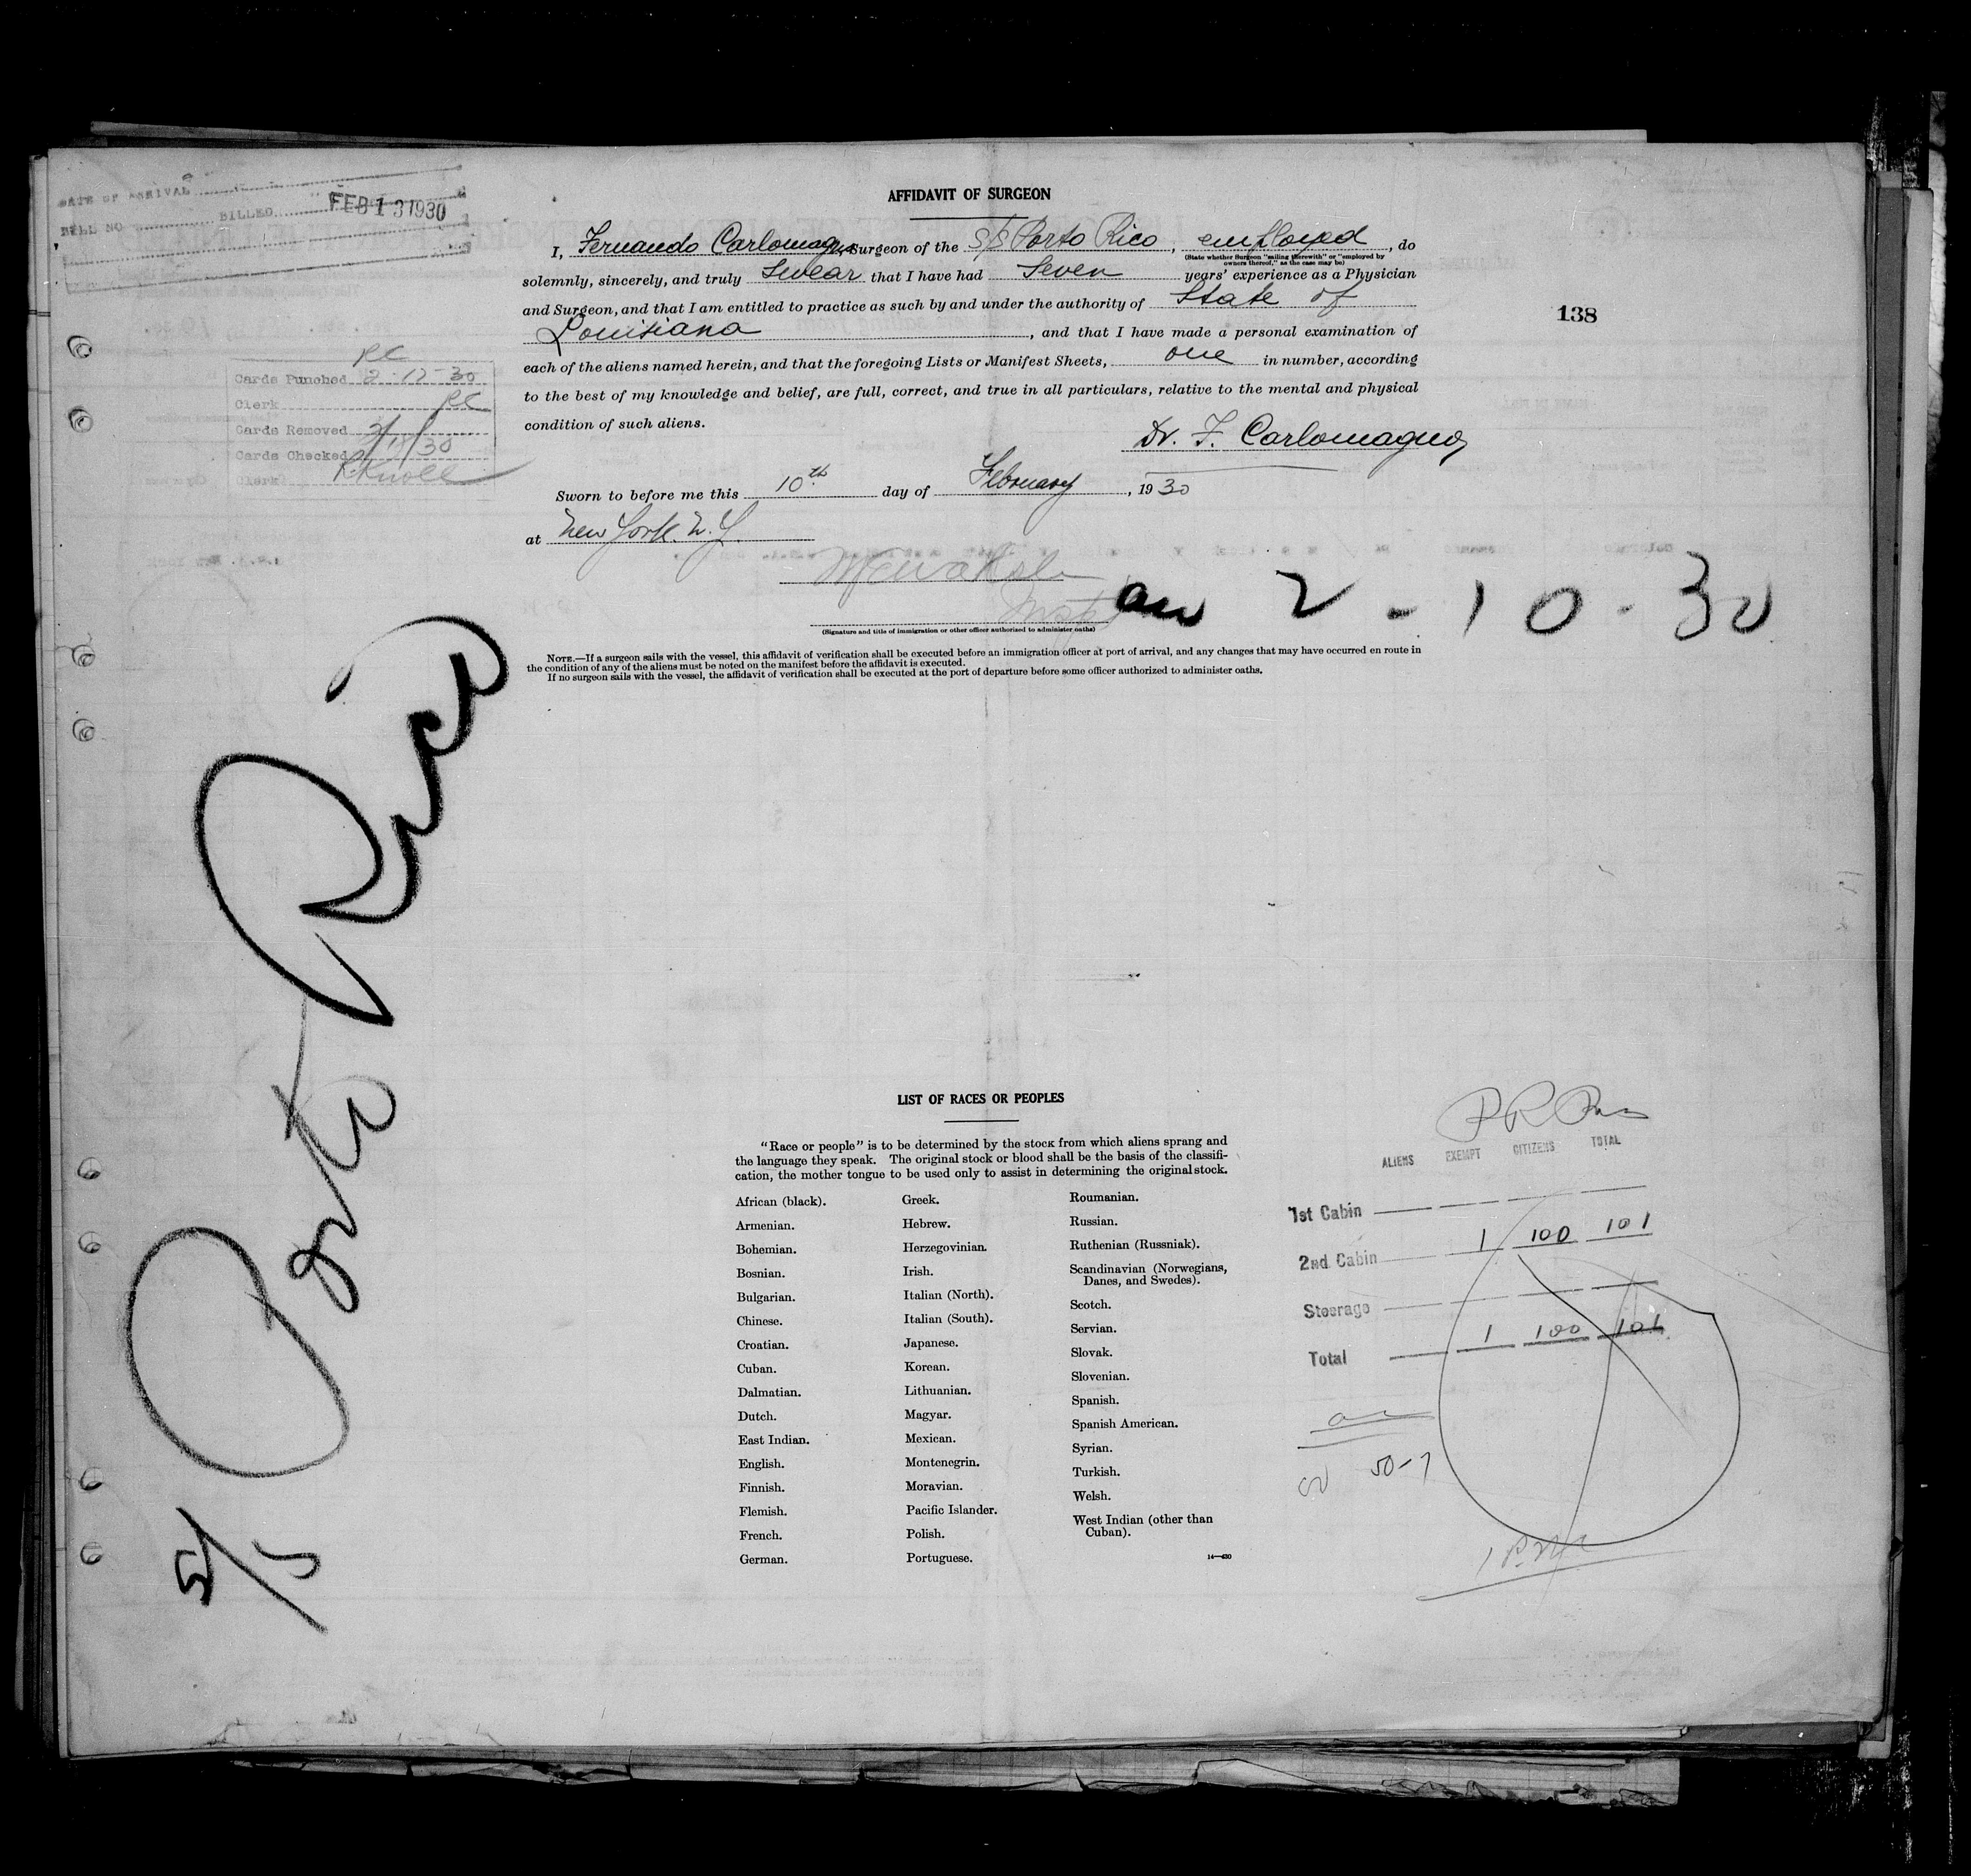 DATE OF ARRIVAL
BILL NO BILLED FEB 13 1930
AFFIDAVIT OF SURGEON
I, Fernando Carlomagno, Surgeon of the S/S Porto Rico, employed, do
(State whether Surgeon "sailing therewith" or "employed by
owners thereof," as the case may be)
solemnly, sincerely, and truly Swear that I have had Seven years' experience as a Physician
and Surgeon, and that I am entitled to practice as such by and under the authority of State of
Louisiana, and that I have made a personal examination of
each of the aliens named herein, and that the foregoing Lists or Manifest Sheets, one in number, according
to the best of my knowledge and belief, are full, correct, and true in all particulars, relative to the mental and physical
condition of such aliens.
Dr. F. Carlomagno,
Sworn to before me this 10th day of February, 1930
at New York. N.Y.
(Signature and title of immigration or other officer authorized to administer oaths)
NOTE.—If a surgeon sails with the vessel, this affidavit of verification shall be executed before an immigration officer at port of arrival, and any changes that may have occurred en route in
the condition of any of the aliens must be noted on the manifest before the affidavit is executed.
If no surgeon sails with the vessel, the affidavit of verification shall be executed at the port of departure before some officer authorized to administer oaths.
138
RC
Cards Punched 2-17-30
Clerk RC
Cards Removed
Cards Checked
Clerk R Knoll
2-10-30
S/S Porto Rico
LIST OF RACES OR PEOPLES
"Race or people" is to be determined by the stock from which aliens sprang and
the language they speak. The original stock or blood shall be the basis of the classifi-
cation, the mother tongue to be used only to assist in determining the original stock.
African (black).
Armenian.
Bohemian.
Bosnian.
Bulgarian.
Chinese.
Croatian.
Cuban.
Dalmatian.
Dutch.
East Indian.
English.
Finnish.
Flemish.
French.
German.
Greek.
Hebrew.
Herzegovinian.
Irish.
Italian (North).
Italian (South).
Japanese.
Korean.
Lithuanian.
Magyar.
Mexican.
Montenegrin.
Moravian.
Pacific Islander.
Polish.
Portuguese.
Roumanian.
Russian.
Ruthenian (Russniak).
Scandinavian (Norwegians,
Danes, and Swedes).
Scotch.
Servian.
Slovak.
Slovenian.
Spanish.
Spanish American.
Syrian.
Turkish.
Welsh.
West Indian (other than
Cuban).
14—430
ALIENS EXEMPT CITIZENS TOTAL
1st Cabin
2nd Cabin 1 100 101
Steerage
Total 1 100 101
50-7